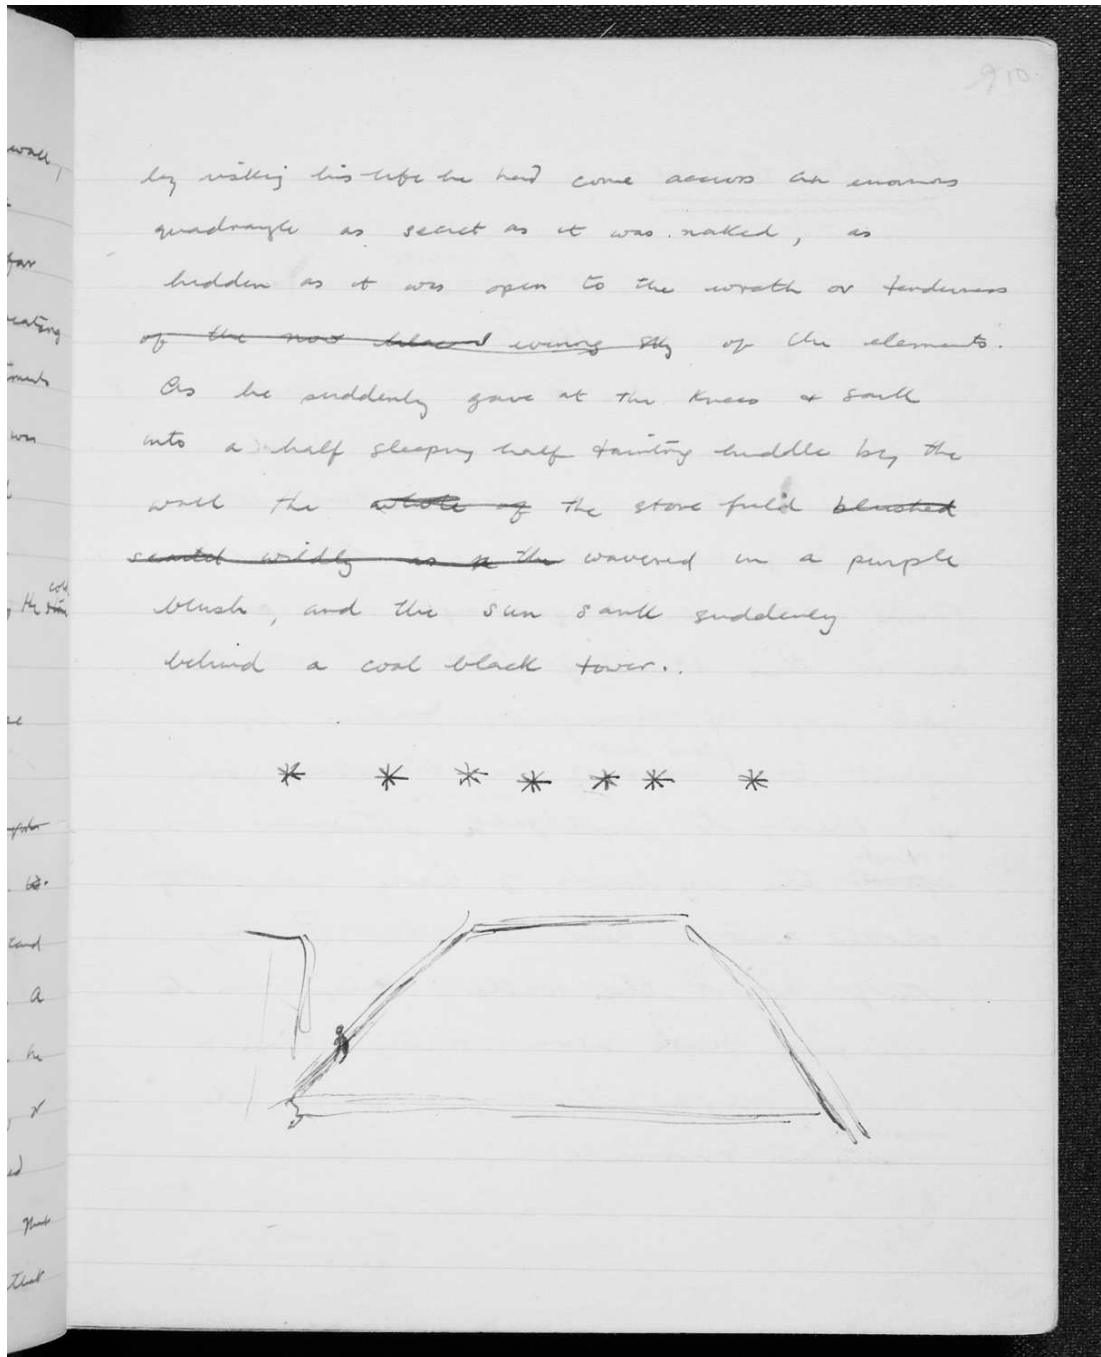 by risking his life he had come across an enormous
quadrangle as secret as it was naked, as
hidden as it was open to the wrath or tenderness
of the now evening sky of the elements.
As he suddenly gave at the knees & sank
into a half sleeping half fainting huddle by the
wall the whole of the stone field blushed
wildly as the wavered in a purple
blush, and the sun sank suddenly
behind a coal black tower..
* * * * * * *